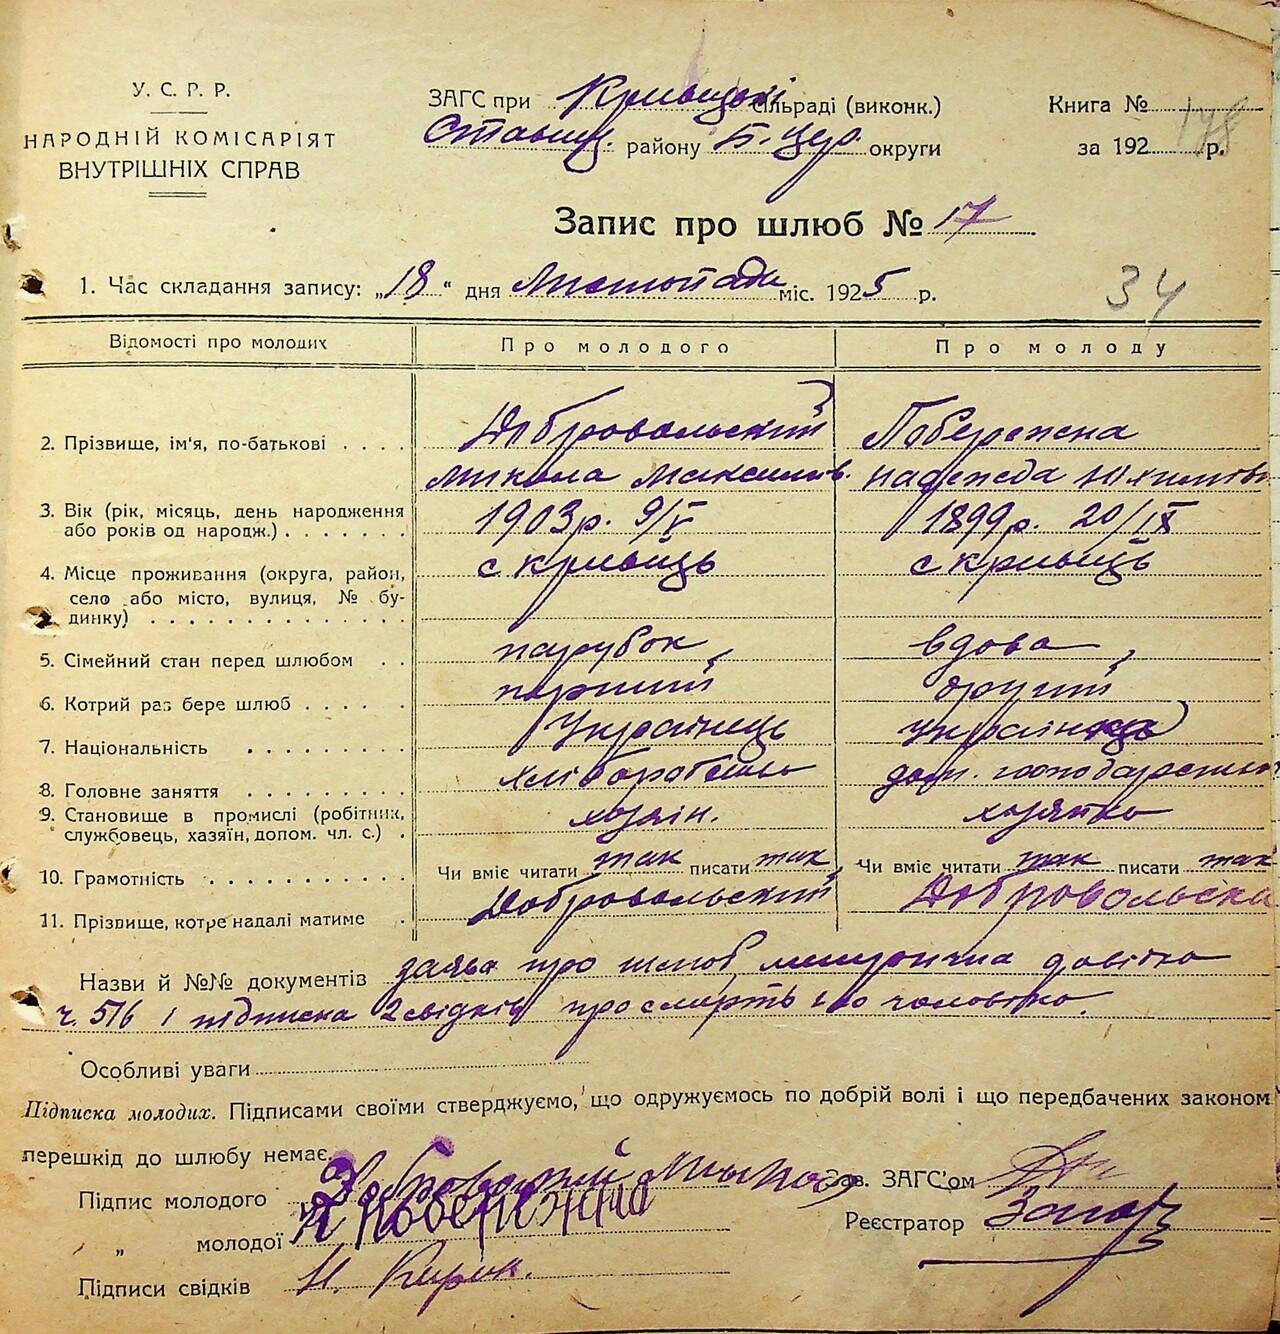 У. С. Р. Р.
НАРОДНІЙ КОМІСАРІЯТ
ВНУТРІШНІХ СПРАВ
ЗАГС при Кривецькі сільраді (виконк.)
Ставищ. району Б. Цер. округи
Книга №
за 192 р.
178
Запис про шлюб № 17
1. Час складання запису: „18“ дня Листопада міс. 1925 р.
34
Відомості про молодих Про молодого Про молоду
2. Прізвище, ім'я, по-батькові . . . . Добровольский Побережна
Микола Максимів. Надежда
3. Вік (рік, місяць, день народження 1903 р. 9/V 1899 р. 20/IX
або років од народж.) . . . . . . .
4. Місце проживання (округа, район, с кривець с кривець
село або місто, вулиця, № бу-
динку) . . . . . . . . . . . . . .
5. Сімейний стан перед шлюбом . . парубок, вдова,
6. Котрий раз бере шлюб . . . . . перший другий
7. Національність . . . . . . . . . Українець українка
8. Головне заняття . . . . . . . . . хліборобство дом. господарство
9. Становище в промислі (робітник, хозяін. хозяйка
службовець, хазяїн, допом. чл. с.) .
10. Грамотність . . . . . . . . . . . Чи вміє читати так писати так, Чи вміє читати так писати так
11. Прізвище, котре надалі матиме . Добровольский Добровольска
Назви й №№ документів заява про шлюб, довітка
ч. 516 і підписка 2 свідків про смерть її чоловіка.
Особливі уваги
Підписка молодих. Підписами своїми стверджуємо, що одружуємось по добрій волі і що передбачених законом
перешкід до шлюбу немає.
Підпис молодого Добровольский Зав. ЗАГС'ом
„ молодої Н Побережна Реєстратор
Підписи свідків Н.